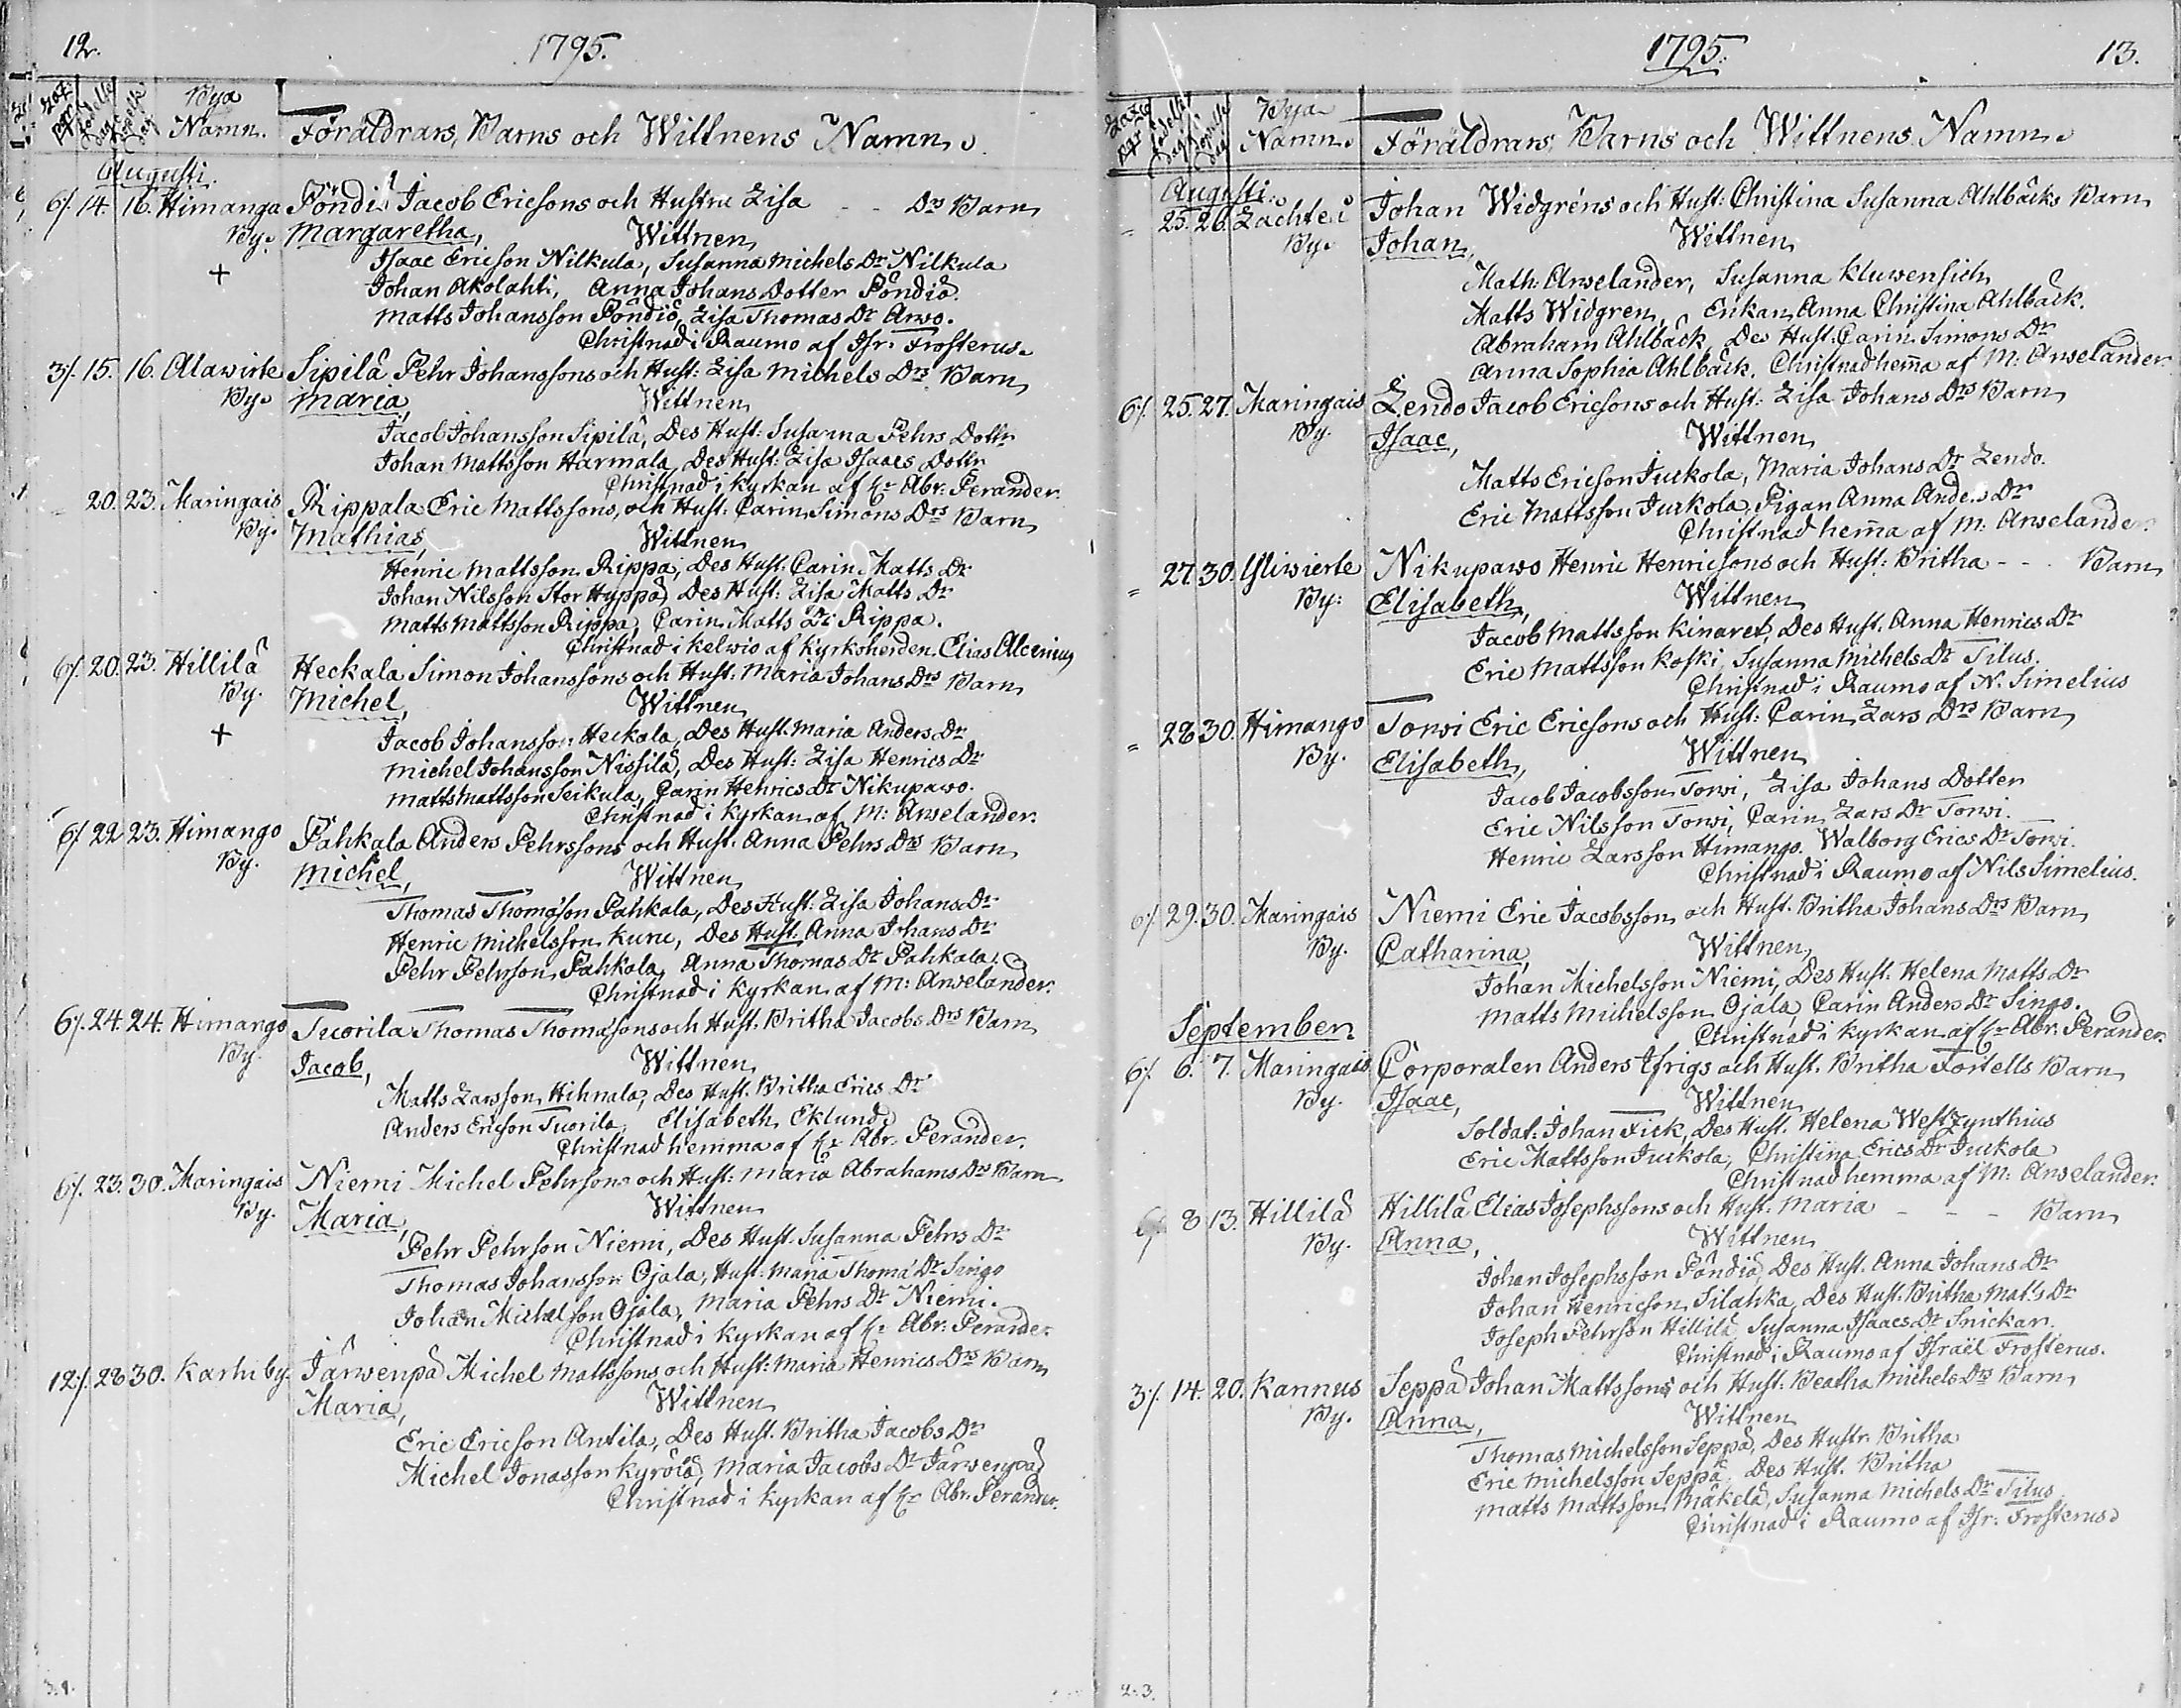 12.
1795.
Bya
Namn.
Föräldrars, Barns och Wittnens Namn.
Augusti.
6/. 14. 16. Himanga Pöndiö Jacob Ericsons och Hustru Lisa - - Drs Barn
By. Margaretha, Wittnen
Isaac Ericson Nilkula, Susanna Michels Dr Nilkula
+ Johan Akolahti, Anna Johans Dotter Pöndiö.
Matts Johansson Pöndiö, Lisa Thomas Dr Arwo.
Christnad i Raumo af Isr. Frosterus.
3/. 15. 16. Alawirte Sipilä Pehr Johanssons och Hust: Lisa Michels Drs Barn
By. Maria, Wittnen
Jacob Johansson Sipilä, Des Hust: Susanna Pehrs Dottr
Johan Mattsson Harmala, Des Hust: Lisa Isaacs Dottr
Christnad i Kyrkan af Hr Abr: Perander.
= 20. 23. Maringais Rippala Eric Mattssons, och Hust: Carin Simons Drs Barn
By. Mathias, Wittnen
Henric Mattsson Rippa, Des Hust: Carin Matts Dr
Johan Nilsson Stor Hyppä, Des Hust: Lisa Matts Dr
Matts Mattsson Rippa, Carin Matts Dr Rippa.
Christnad i Kelwio af Kyrkoherden Elias Alcenius
6/. 20. 23. Hillilä Heckala Simon Johanssons och Hust: Maria Johans Drs Barn
By. Michel, Wittnen
+ Jacob Johansson Heckala, Des Hust. Maria Anders Dr
Michel Johansson Nissilä, Des Hust: Lisa Henrics Dr
Matts Mattsson Seikula, Carin Henrics Dr Nikupawo.
Christnad i Kyrkan af M: Anselander.
6/. 22 23. Himango Pahkala Anders Pehrssons och Hust. Anna Pehrs Drs Barn
By. Michel, Wittnen
Thomas Thomäson Pahkala, Des Hust: Lisa Johans Dr
Henric Michelsson Kune, Des Hust: Anna Johans Dr
Pehr Pehrson Pahkala, Anna Thomas Dr Pahkala.
Christnad i Kyrkan af M: Anselander.
6/. 24. 24. Himango Tuorila Thomas Thomäsons och Hust. Britha Jacobs Drs Barn
By. Jacob, Wittnen
Matts Larsson Hihnala, Des Hust. Britha Erics Dr
Anders Ericson Tuorila, Elisabeth Eklund
Christnad hemma af Hr Abr. Perander.
6/. 23. 30. Maringais Niemi Michel Pehrsons och Hust: Maria Abrahams Drs Barn
By. Maria, Wittnen
Pehr Pehrson Niemi, Des Hust. Susanna Pehrs Dr
Thomas Johansson Ojala, Hust: Maria Thomä Dr Singo
Johan Michelson Ojala, Maria Pehrs Dr Niemi.
Christnad i Kyrkan af Hr Abr: Perander
12/. 28 30. Karhi by. Järwenpä Michel Mattssons och Hust: Maria Henrics Drs Barn
Maria, Wittnen
Eric Ericson Antila, Des Hust. Britha Jacobs Dr
Michel Jonasson Kyrölä, Maria Jacobs Dr Järwenpä
Christnad i Kyrkan af Hr Abr. Perander.
1795.
13.
Bya
Namn.
Föräldrars, Barns och Wittnens Namn.
Augusti.
= 25. 26. Lachte. Johan Widgréns och Hust: Christina Susanna Ahlbäcks Barn
By. Johan, Wittnen
Math: Anselander, Susanna Kluwensich
Matts Widgren, Enkan Anna Christina Ahlbäck.
Abraham Ahlbäck, Des Hust: Carin Simons Dr
Anna Sophia Ahlbäck. Christnad hem̄a af M: Anselander.
6/. 25. 27. Maringais Lendo Jacob Ericsons och Hust: Lisa Johans Drs Barn
By. Isaac, Wittnen
Matts Ericson Juckola, Maria Johans Dr Lendo.
Eric Mattsson Juckola, Pigan Anna Anders Dr
Christnad hem̄a af M: Anselander.
= 27. 30. Yliwierte Nikupawo Henric Henricsons och Hust: Britha - - Barn
By: Elisabeth, Wittnen
Jacob Mattsson Kinaret, Des Hust. Anna Henrics Dr
Eric Mattsson Koski, Susanna Michels Dr Tilus.
Christnad i Raumo af N. Simelius
= 28 30. Himango Torwi Eric Ericsons och Hust: Carin Lars Drs Barn
By. Elisabeth, Wittnen
Jacob Jacobsson Torwi, Lisa Johans Dotter
Eric Nilsson Torwi, Carin Lars Dr Torwi.
Henric Larsson Himango. Walborg Erics Dr Torwi.
Christnad i Raumo af Nils Simelius.
6/. 29. 30. Maringais Niemi Eric Jacobsson och Hust. Britha Johans Drs Barn
By. Catharina, Wittnen
Johan Michelsson Niemi, Des Hust. Helena Matts Dr
Matts Michelsson Ojala, Carin Anders Dr Singo.
Christnad i Kyrkan af Hr Abr. Perander.
September
6/. 6. 7. Maringais Corporalen Anders Ifrigs och Hust. Britha Fortells Barn
By. Isaac, Wittnen
Soldat: Johan Fick, Des Hust. Helena Westzynthius
Eric Mattsson Juckola, Christina Erics Dr Juckola
Christnad hemma af M: Anselander.
6/. 8 13. Hillilä Hillilä Elias Josephssons och Hust. Maria - - - Barn
By. Anna, Wittnen
Johan Josephsson Pöndiö, Des Hust. Anna Johans Dr
Johan Henricson Silahka, Des Hust. Britha Mats Dr
Joseph Pehrson Hillilä, Susanna Isaacs Dr Snickar.
Christnad i Raumo af Israël Frosterus.
3/. 14. 20. Kannus Seppä Johan Mattssons och Hust: Beatha Michels Drs Barn
By. Anna, Wittnen
Thomas Michelsson Seppä, Des Hustr. Britha
Eric Michelsson Seppä, Des Hust. Britha
Matts Mattsson Mäkelä, Susanna Michels Dr Tilus
Christnad i Raumo af Isr: Frosterus